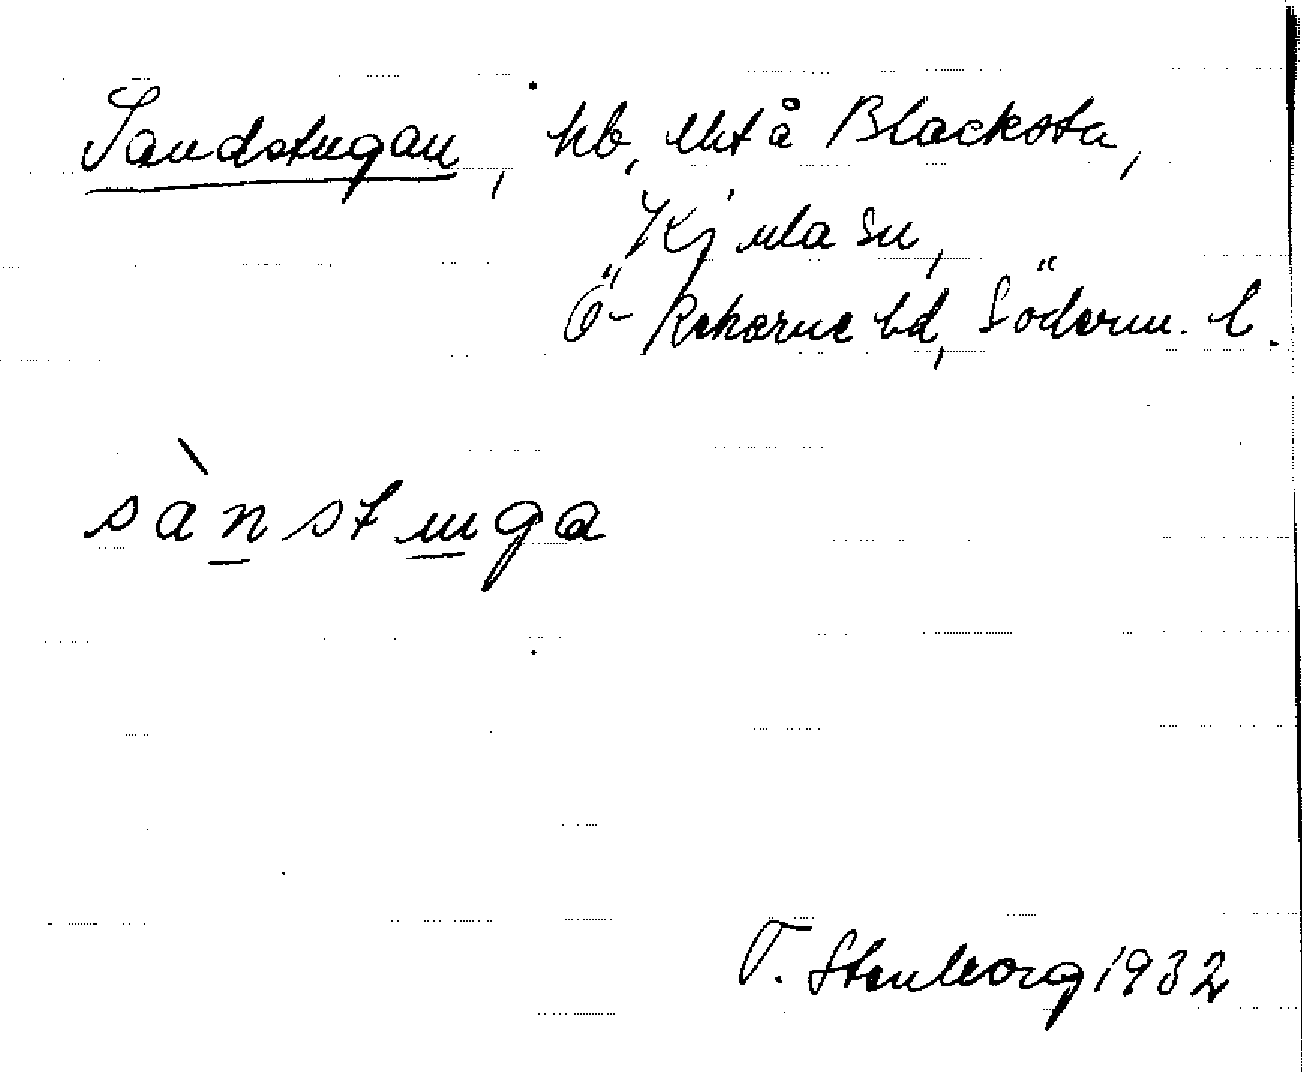 Sandstugan, hb, Mt å Blacksta,
Kjula sn,
Ö-Rekarne hd, Söderm. l.
sànstuga
T. Stenborg 1932